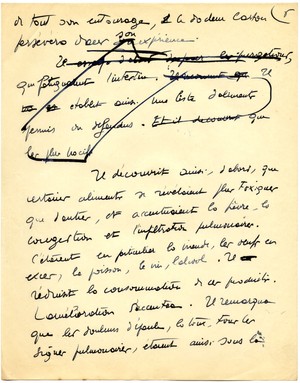 de tout son entourage, et le docteur Carton 5
persévéra dans son expérience.
Il
qui fatiguaient l'intestin. Il
établit ainsi une liste d'aliments
permis ou défendus. Et il découvrit que
les plus nocifs
Il découvrit ainsi, d'abord, que
certains aliments se révélaient plus toxiques
que d'autres, et accentuaient la fièvre, la
congestion et l'infiltration pulmonaire.
C'étaient en particulier la viande, les œufs en
excès, le poisson, le vin, l'alcool. Il
réduisit la consommation de ces produits.
L'amélioration s'accentua. Il remarqua
que les douleurs d'épaule, la toux, tous les
signes pulmonaires, étaient ainsi sous la